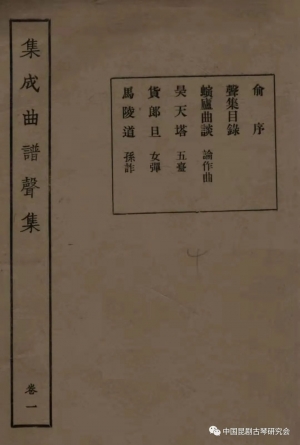 俞序
聲集目錄
螾廬曲談 論作曲
昊天塔 五臺
貨郎旦 女彈
馬陵道 孫詐
集成曲譜聲集
卷一
中国昆剧古琴研究会